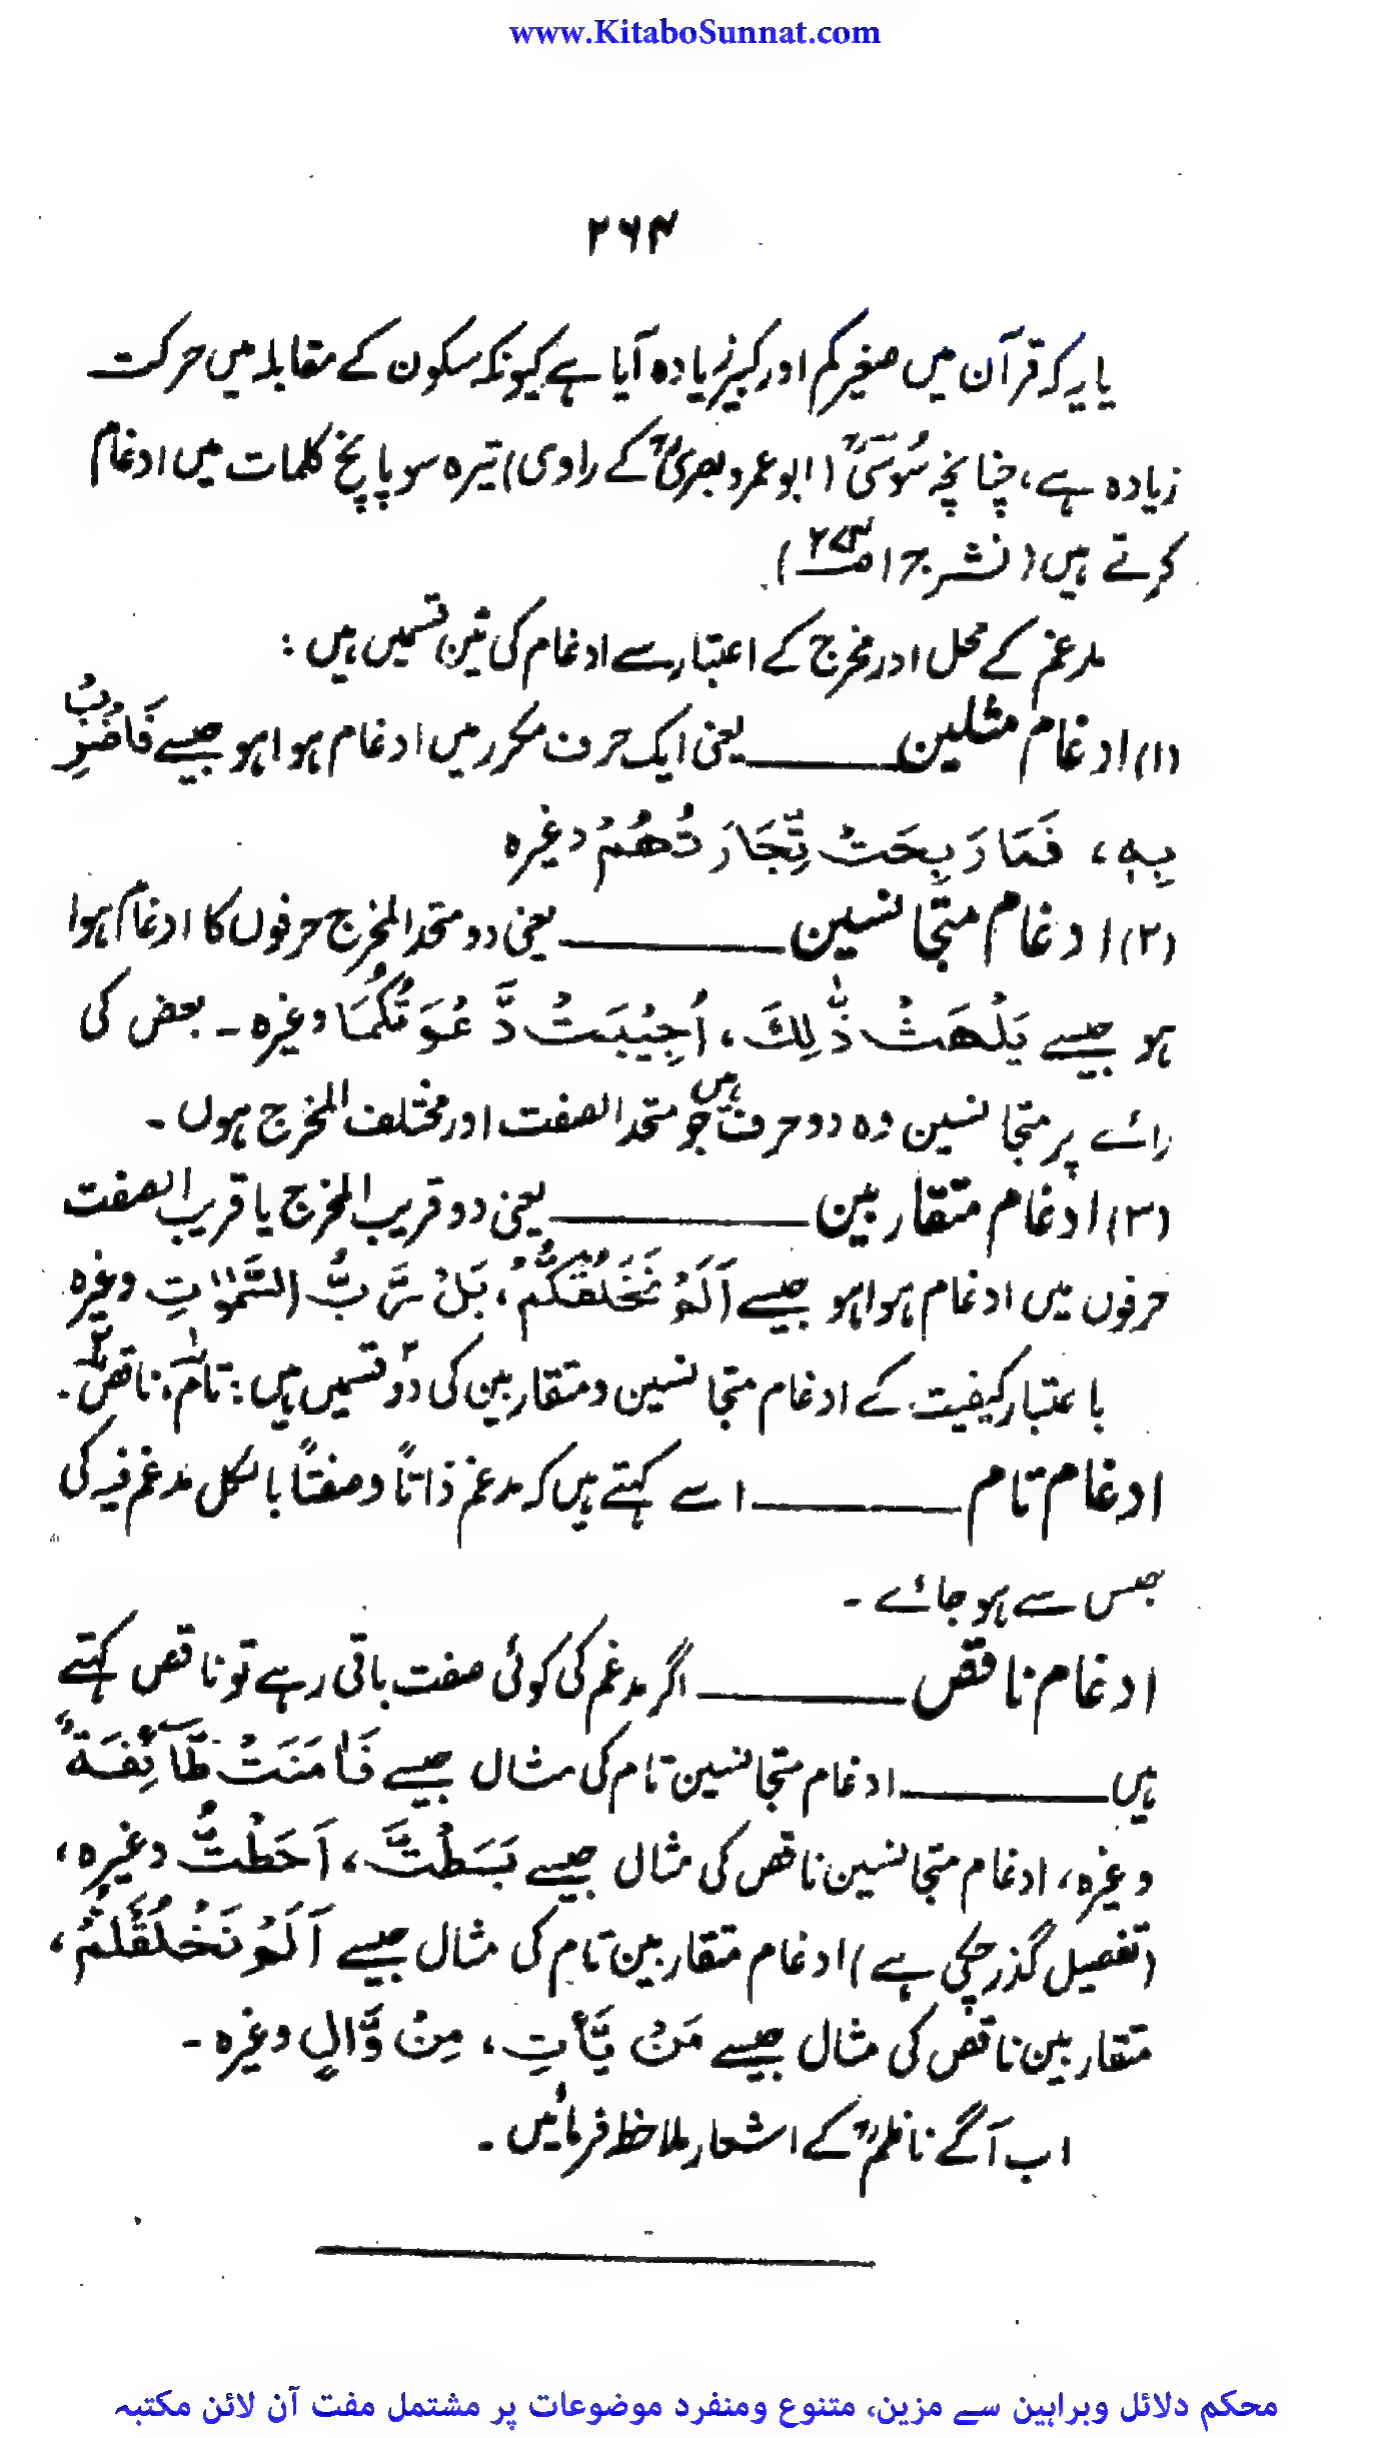 www.KitaboSunnat.com
۲۶۴
یا یہ کہ قرآن میں صغیر کم اور کبیر زیادہ آیا ہے کیونکہ سکون کے مقابلہ میں حرکت
زیادہ ہے، چنانچہ سُوسیؒ (ابو عمرو بصریؒ کے راوی) تیرہ سو پانچ کلمات میں ادغام
کرتے ہیں (نشر ج ۱ ص)
مدغم کے محل اور مخرج کے اعتبار سے ادغام کی تین قسمیں ہیں :
(۱) ادغام مثلین ــــــــ یعنی ایک حرف مکرر میں ادغام ہوا ہو جیسے فَاضْرِبْ
بِهٖ ، فَمَا رَبِحَتْ تِّجَارَتُهُمْ وغیرہ
(۲) ادغام متجانسین ــــــــ یعنی دو متحد المخرج حرفوں کا ادغام ہوا
ہو جیسے یَلْهَثْ ذّٰلِكَ ، اُجِیْبَتْ دَّعْوَتُكُمَا وغیرہ ۔ بعض کی
رائے پر متجانسین وہ دو حرف ہیں جو متحد الصفت اور مختلف المخرج ہوں ۔
(۳) ادغام متقاربین ــــــــ یعنی دو قریب المخرج یا قریب الصفت
حرفوں میں ادغام ہوا ہو جیسے اَلَمْ نَخْلُقْكُّمْ ، بَلْ رَّبُّ السَّمٰوٰتِ وغیرہ
باعتبار کیفیت کے ادغام متجانسین و متقاربین کی دو۲ قسمیں ہیں : تام۱ٌ، ناقص۲ٌ ۔
ادغام تام ــــــــ اسے کہتے ہیں کہ مدغم ذاتاً و صفتاً بالکل مدغم فیہ کی
جنس سے ہو جائے ۔
ادغام ناقص ــــــــ اگر مدغم کی کوئی صفت باقی رہے تو ناقص کہتے
ہیں ــــــــ ادغام متجانسین تام کی مثال جیسے فَاٰمَنَتْ طَّآئِفَةٌ
وغیرہ، ادغام متجانسین ناقص کی مثال جیسے بَسَطْتَّ ، اَحَطْتُّ وغیرہ ،
(تفصیل گذر چکی ہے) ادغام متقاربین تام کی مثال جیسے اَلَمْ نَخْلُقْكُّمْ ،
متقاربین ناقص کی مثال جیسے مَنْ یَّأْتِ ، مِنْ وَّالٍ وغیرہ ۔
اب آگے ناظمؒ کے اشعار ملاحظہ فرمائیں ۔
محکم دلائل وبراہین سے مزین، متنوع ومنفرد موضوعات پر مشتمل مفت آن لائن مکتبہ